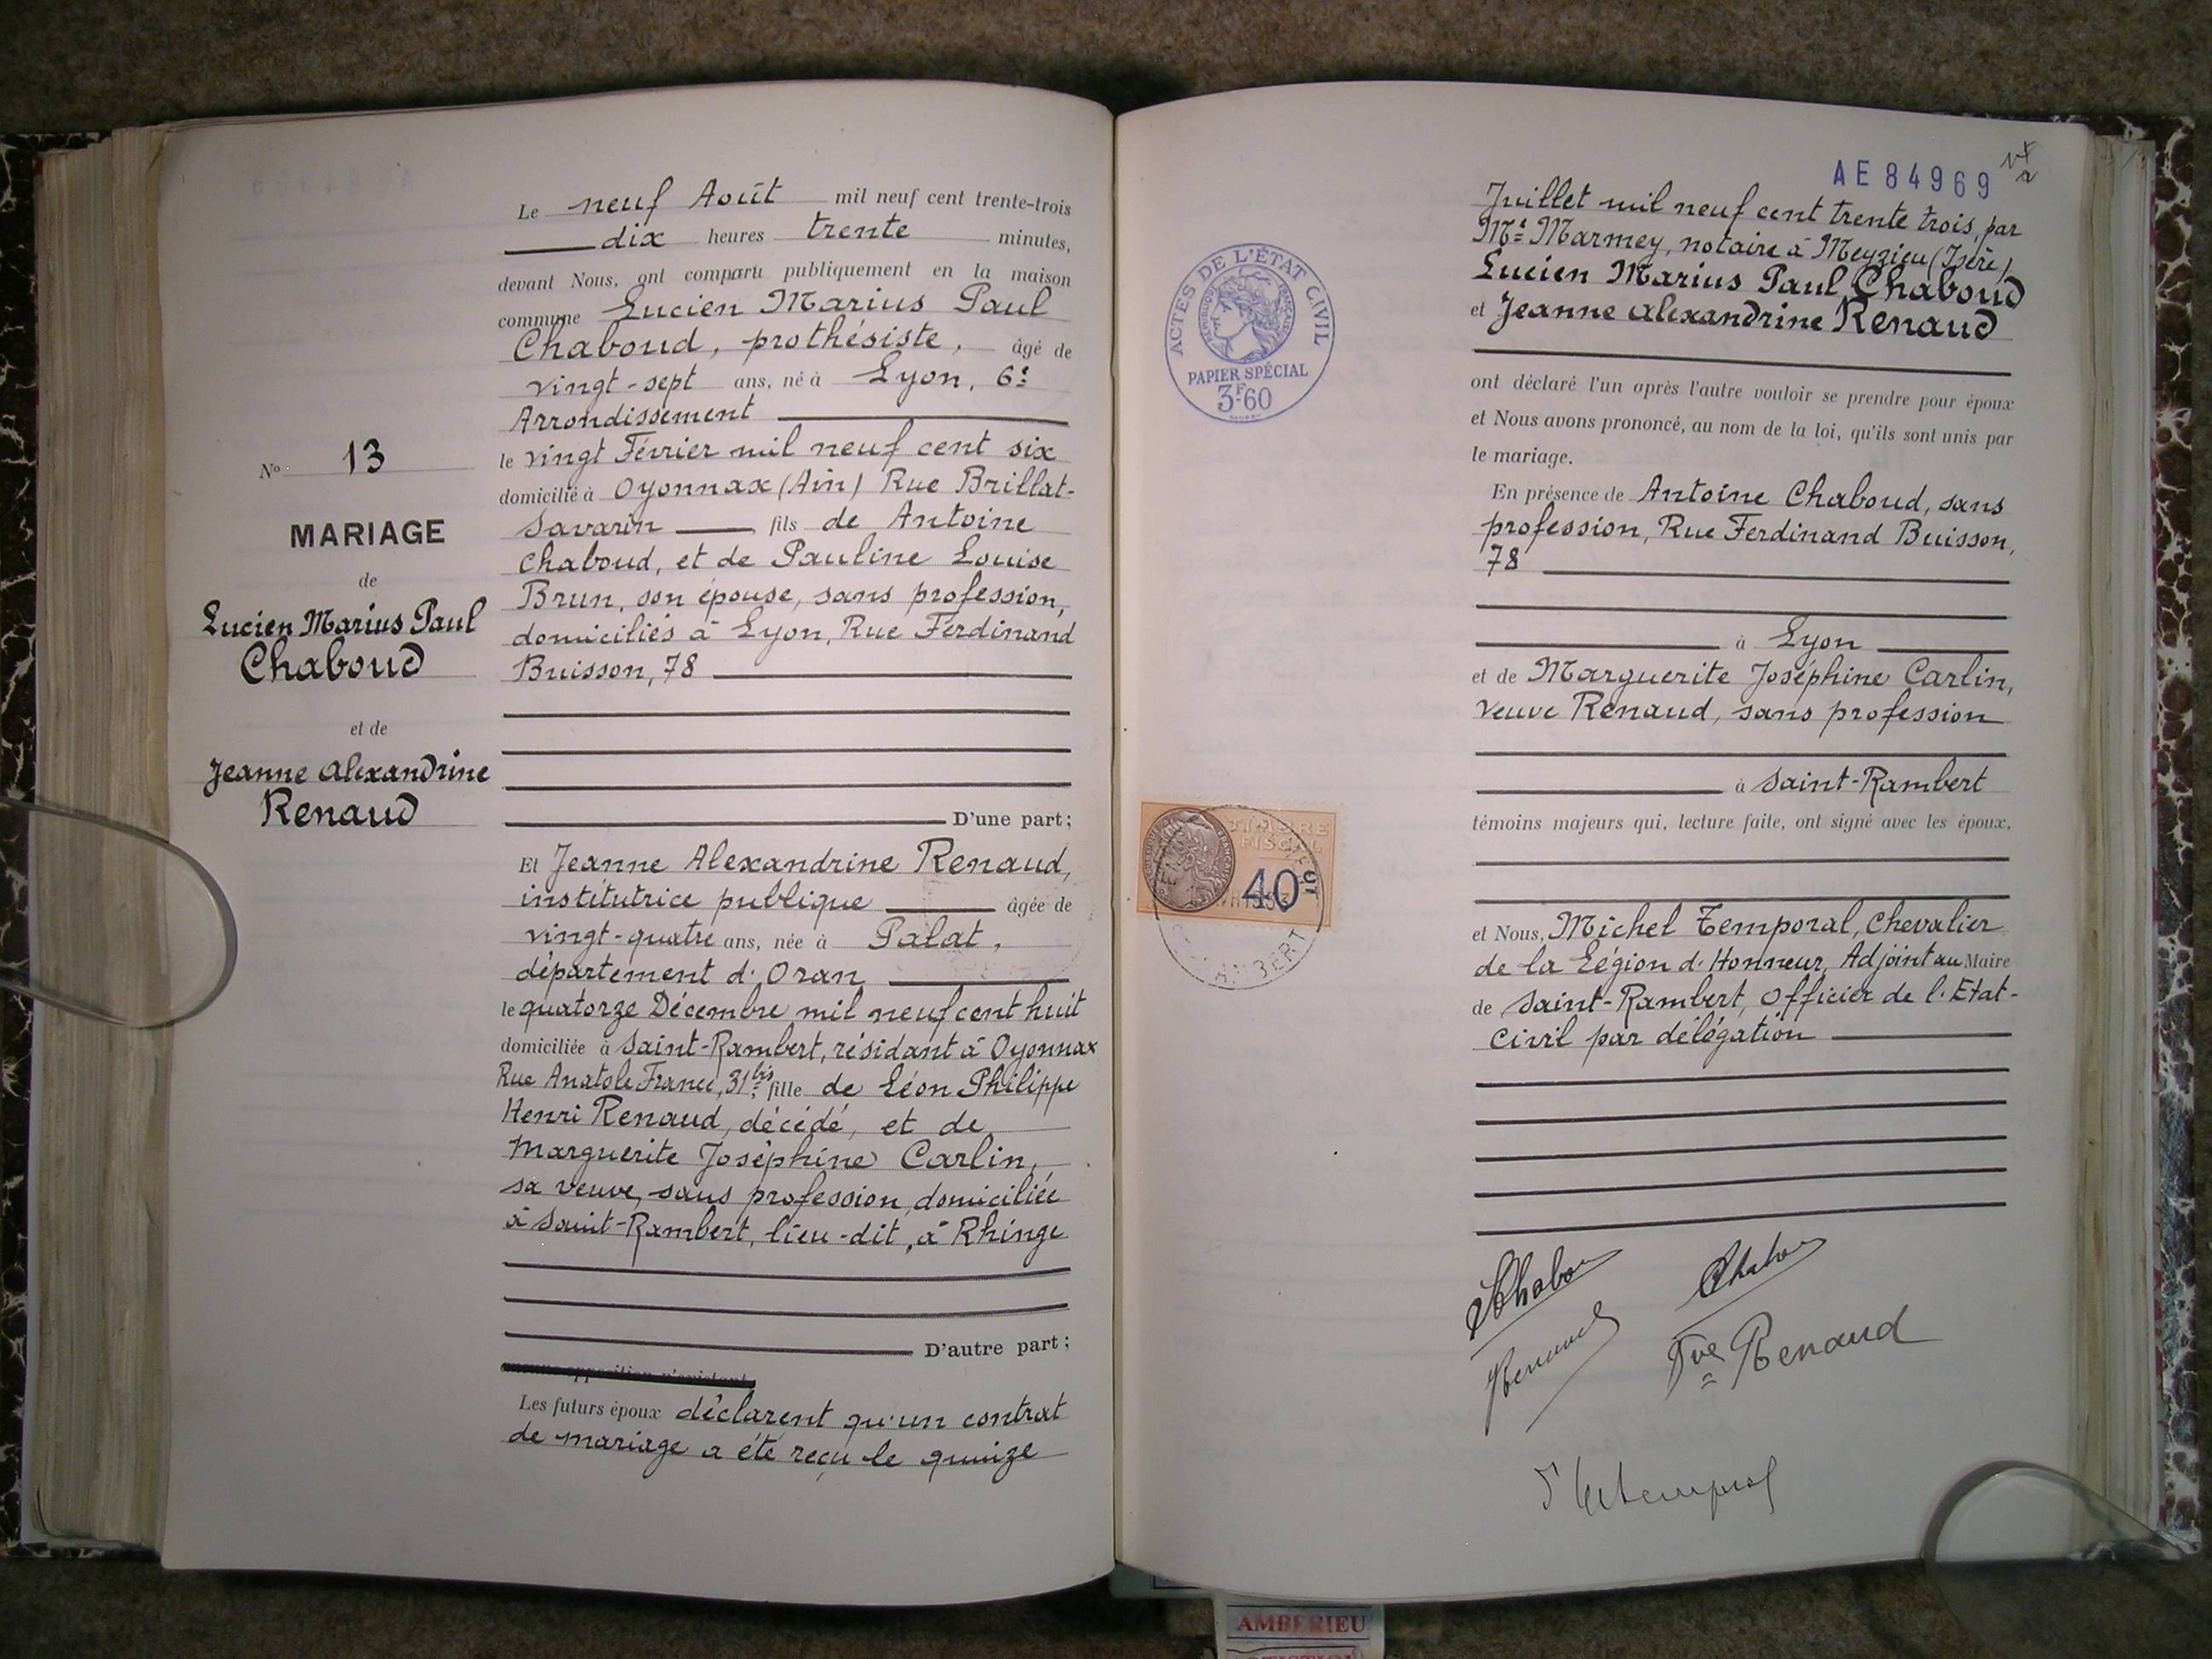 Le neuf Août mil neuf cent trente-trois
dix heures trente minutes,
devant Nous, ont comparu publiquement en la maison
commune Lucien Marius Paul
Chaboud, prothésiste, âgé de
vingt-sept ans, né à Lyon, 6e
Arrondissement
le vingt Février mil neuf cent six
domicilié à Oyonnax (Ain) Rue Brillat-
Savarin fils de Antoine
Chaboud, et de Pauline Louise
Brun, son épouse, sans profession,
domiciliés à Lyon, Rue Ferdinand
Buisson, 78
No 13
MARIAGE
de
Lucien Marius Paul
Chaboud
et de
Jeanne Alexandrine
Renaud
D'une part;
Et Jeanne Alexandrine Renaud,
institutrice publique âgée de
vingt-quatre ans, née à Palat,
département d'Oran
le quatorze Décembre mil neuf cent huit
domiciliée à Saint-Rambert, résidant à Oyonnax
Rue Anatole France, 31 bis fille de Léon Philippe
Henri Renaud, décédé, et de
Marguerite Joséphine Carlin,
sa veuve, sans profession, domiciliée
à Saint-Rambert, lieu-dit, à Rhinge
D'autre part;
Les futurs époux déclarent qu'un contrat
de mariage a été reçu le quinze
AE 84969
Juillet mil neuf cent trente trois, par
Me Marmey, notaire à Meyzieu (Isère)
Lucien Marius Paul Chaboud
et Jeanne Alexandrine Renaud
ACTES DE L'ÉTAT CIVIL
RÉPUBLIQUE FRANÇAISE
PAPIER SPÉCIAL
3F60
ont déclaré l'un après l'autre vouloir se prendre pour époux
et Nous avons prononcé, au nom de la loi, qu'ils sont unis par
le mariage.
En présence de Antoine Chaboud, sans
profession, Rue Ferdinand Buisson,
78
à Lyon
et de Marguerite Joséphine Carlin,
veuve Renaud, sans profession
à Saint-Rambert
témoins majeurs qui, lecture faite, ont signé avec les époux,
TIMBRE
FISCAL
40
et Nous, Michel Temporal, Chevalier
de la Légion d'Honneur, Adjoint au Maire
de Saint-Rambert, Officier de l'Etat-
civil par délégation
Renaud
Vve Renaud
AMBERIEU